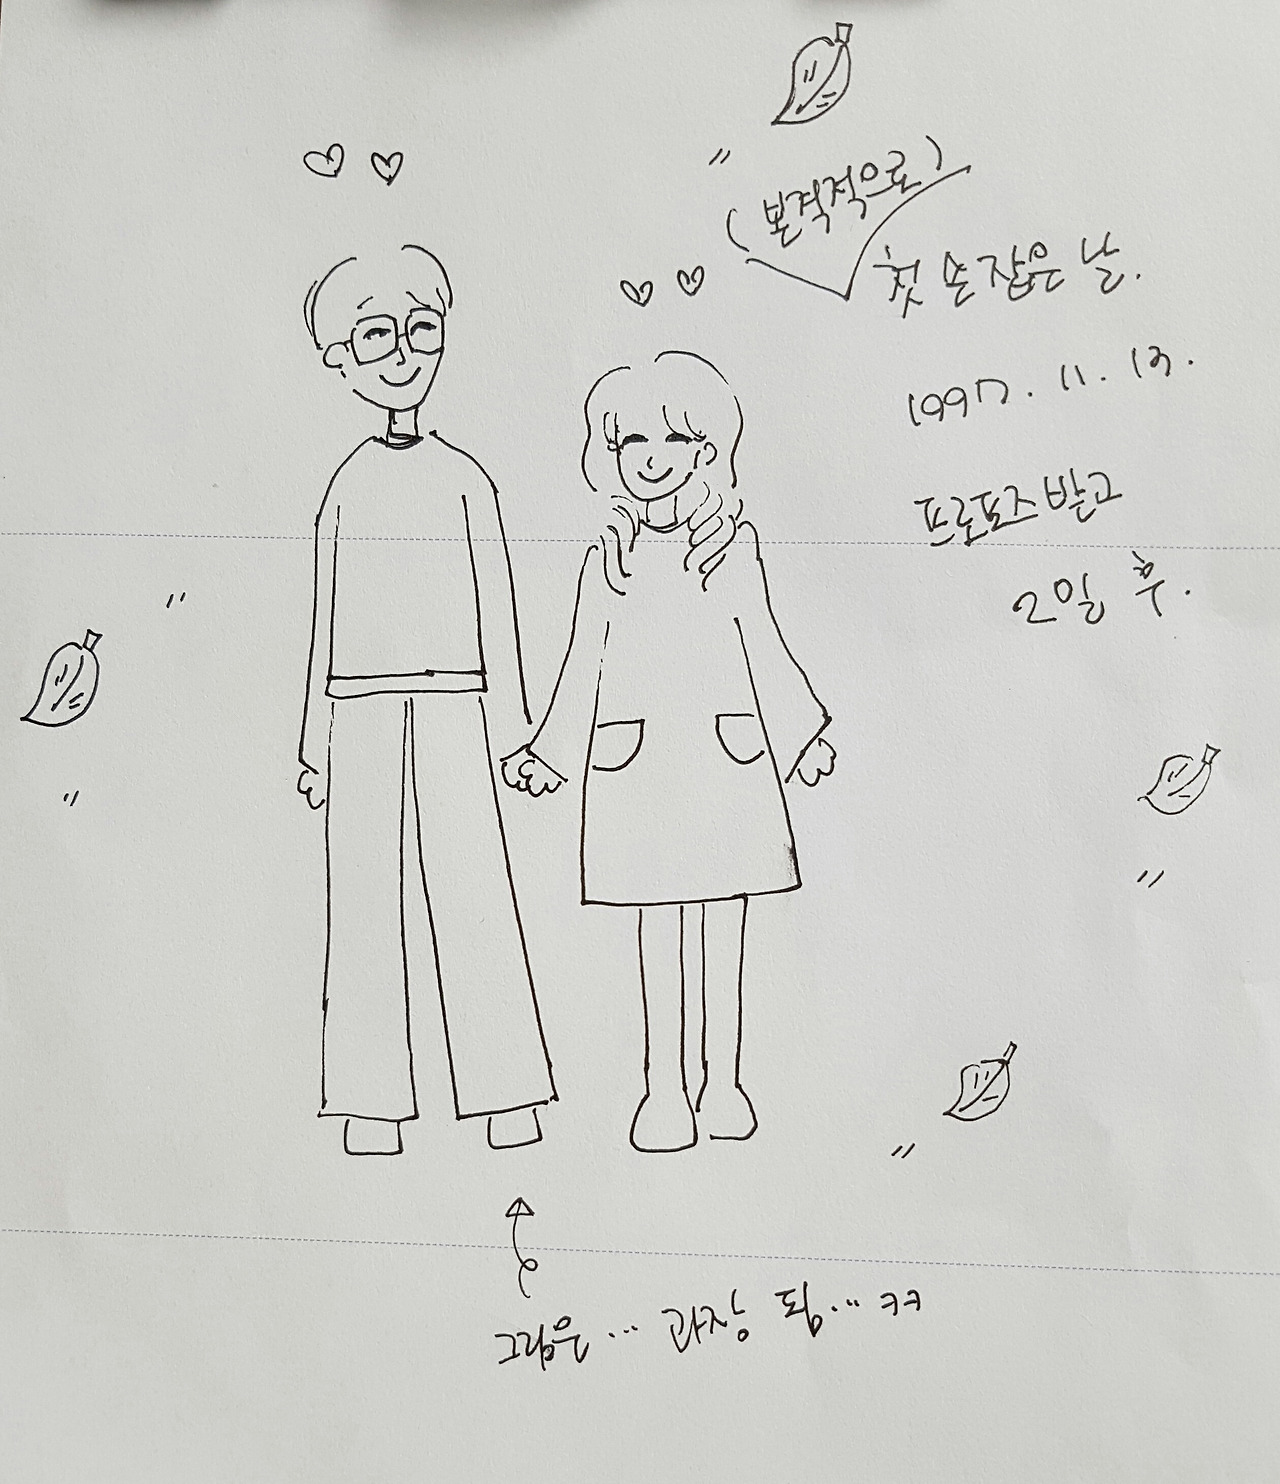 (본격적으로)
첫 손 잡은 날.
1997. 11. 13.
프로포즈 받고
2일 후.
그림은... 과장 됨... ㅋㅋ